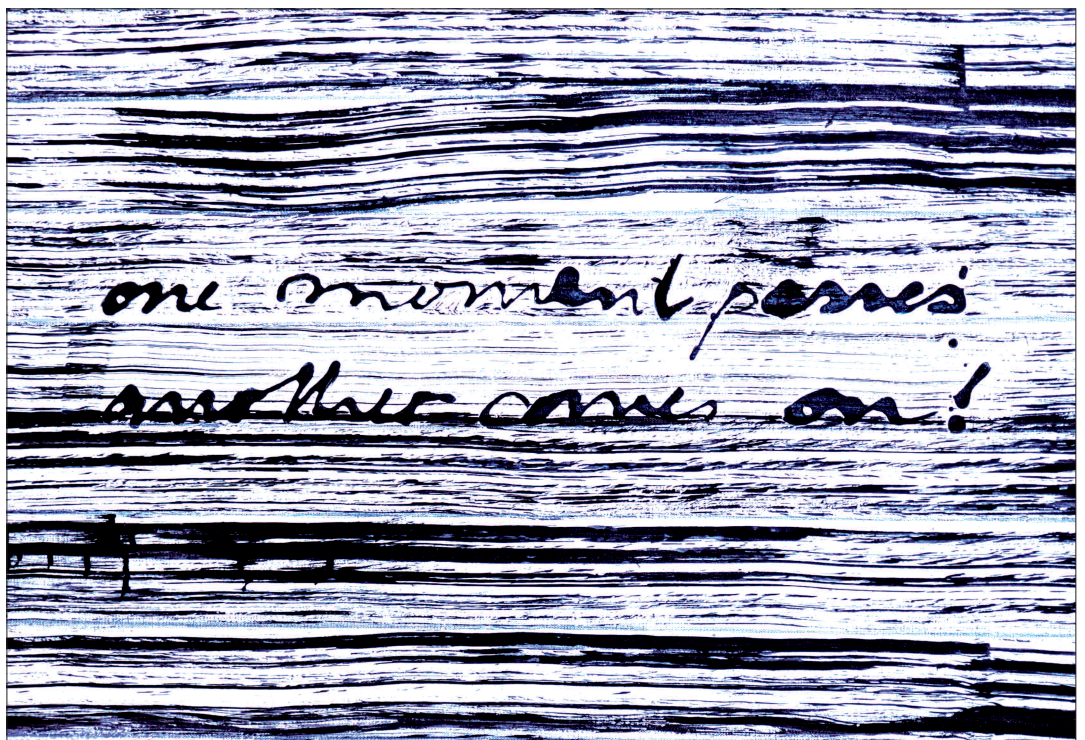 one moment passes
another comes on!